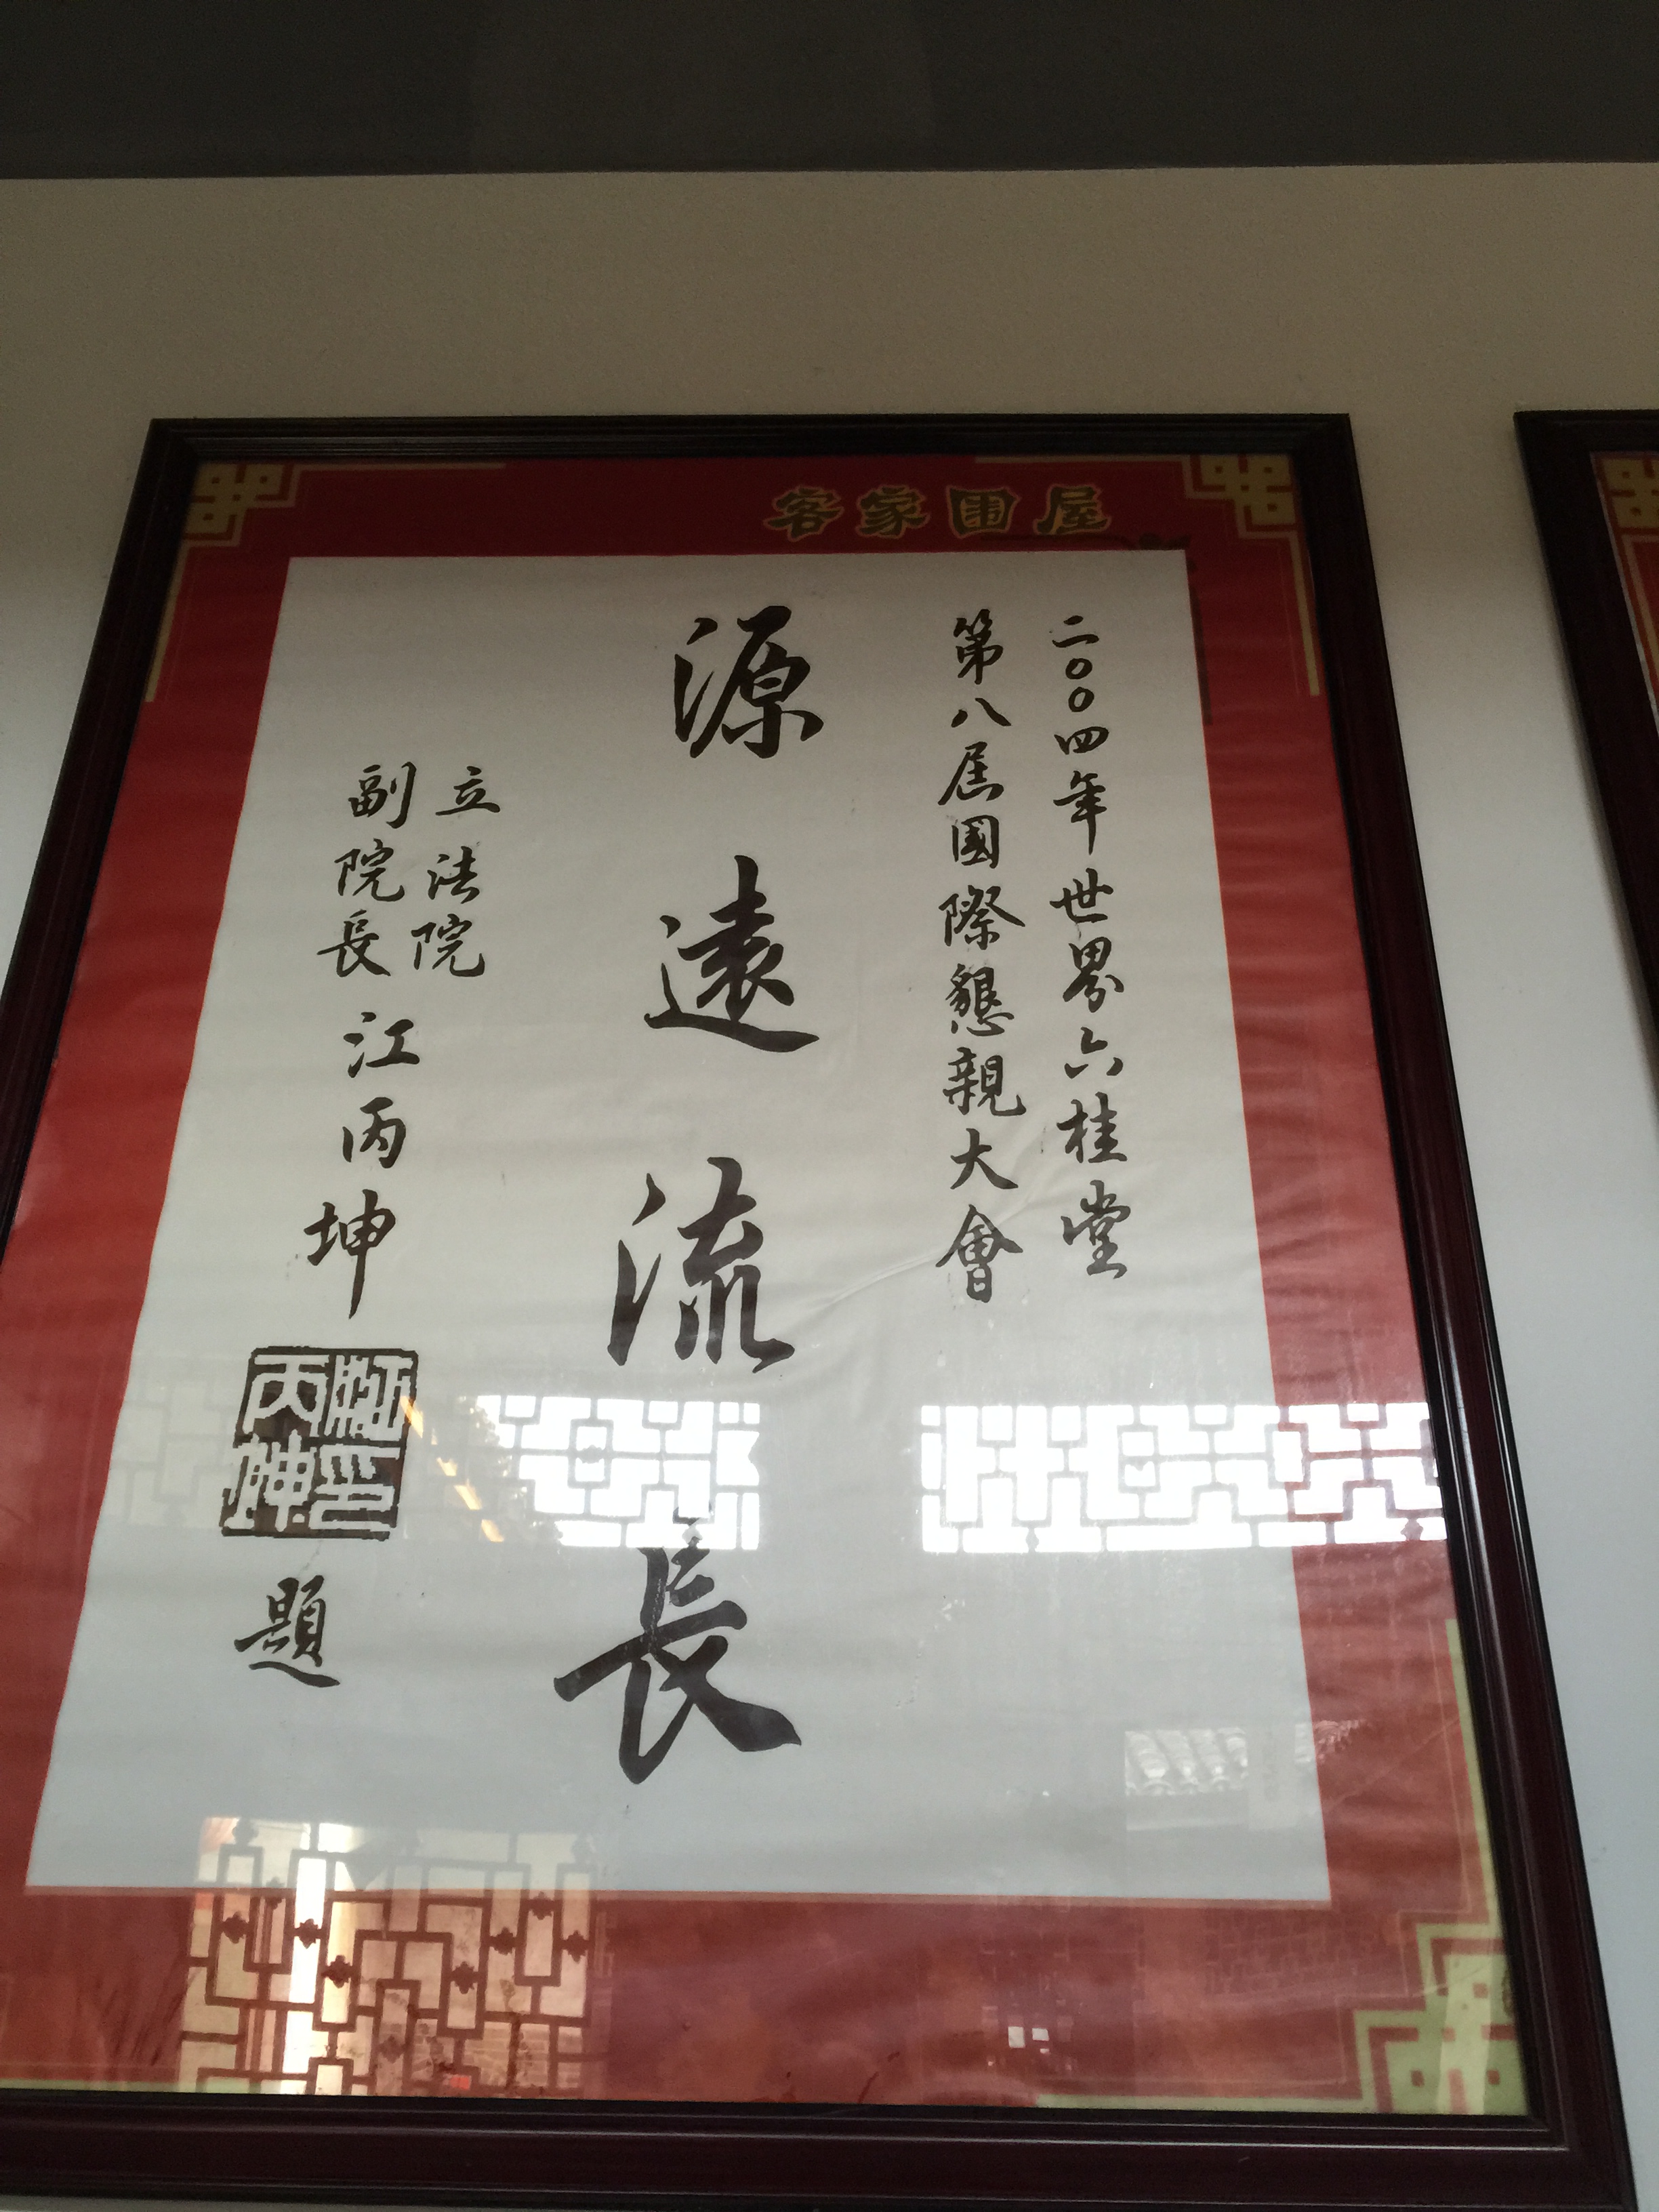 客家围屋
二〇〇四年世界六桂堂
第八届國際懇親大會
源遠流長
立法院
副院長
江丙坤
江丙坤印
題